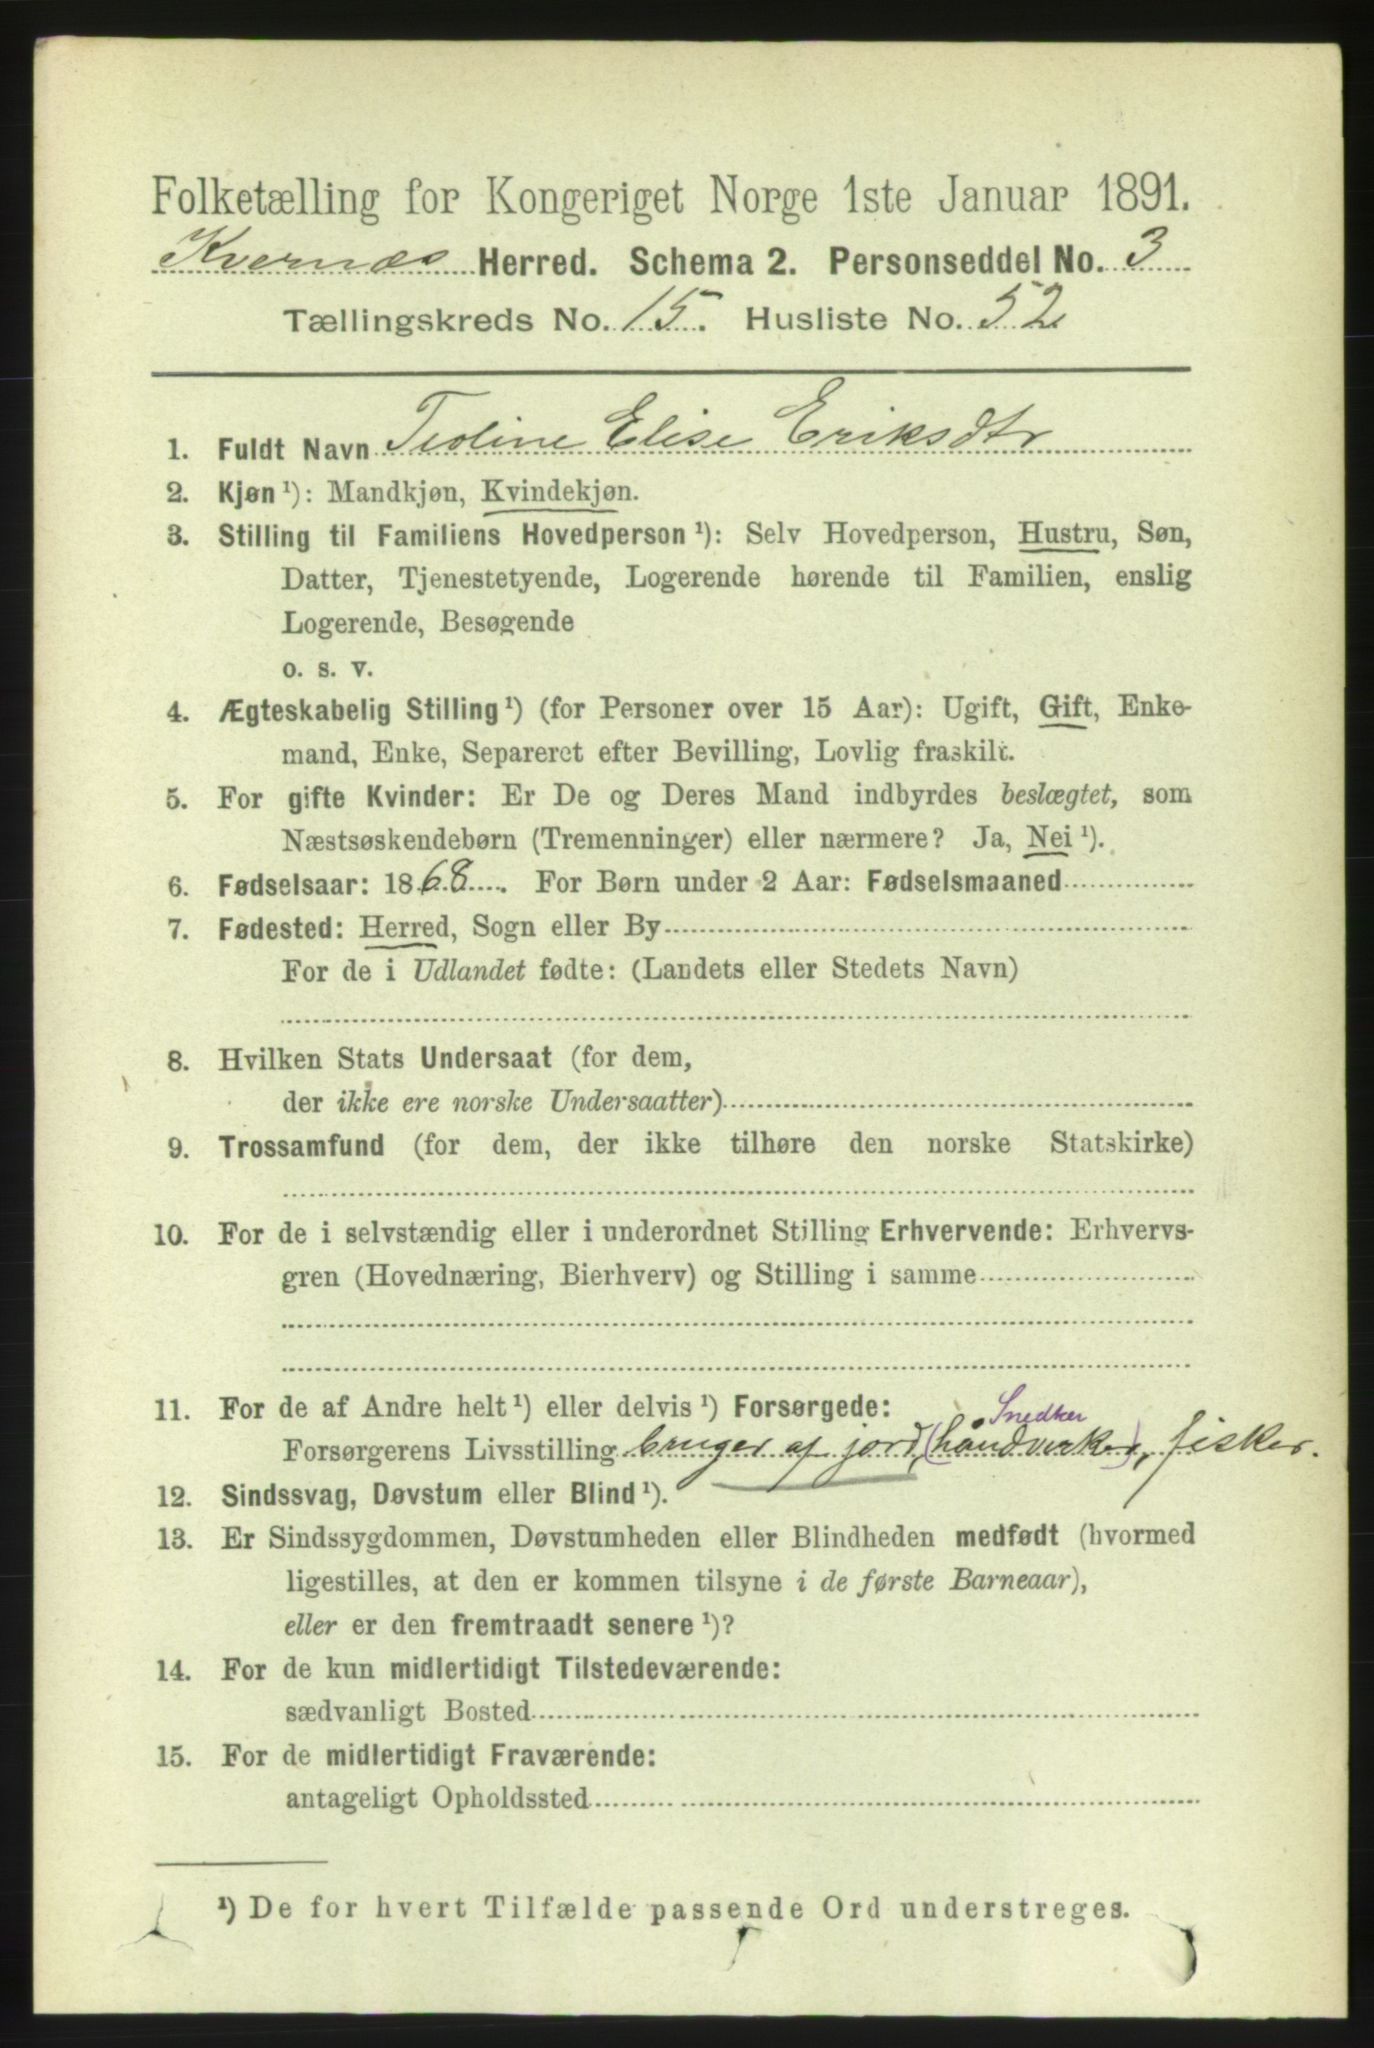 Folketælling for Kongeriget Norge 1ste Januar 1891.
Kvernæs Herred. Schema 2. Personseddel No. 3
Tællingskreds No. 15. Husliste No. 52
1. Fuldt Navn Teoline Elise Eriksdtr
2. Kjøn ¹): Mandkjøn, Kvindekjøn.
3. Stilling til Familiens Hovedperson ¹): Selv Hovedperson, Hustru, Søn,
Datter, Tjenestetyende, Logerende hørende til Familien, enslig
Logerende, Besøgende
o. s. v.
4. Ægteskabelig Stilling ¹) (for Personer over 15 Aar): Ugift, Gift, Enke-
mand, Enke, Separeret efter Bevilling, Lovlig fraskilt.
5. For gifte Kvinder: Er De og Deres Mand indbyrdes beslægtet, som
Næstsøskendebørn (Tremenninger) eller nærmere? Ja, Nei ¹).
6. Fødselsaar: 1868. For Børn under 2 Aar: Fødselsmaaned
7. Fødested: Herred, Sogn eller By
For de i Udlandet fødte: (Landets eller Stedets Navn)
8. Hvilken Stats Undersaat (for dem,
der ikke ere norske Undersaatter)
9. Trossamfund (for dem, der ikke tilhøre den norske Statskirke)
10. For de i selvstændig eller i underordnet Stilling Erhvervende: Erhvervs-
gren (Hovednæring, Bierhverv) og Stilling i samme
11. For de af Andre helt ¹) eller delvis ¹) Forsørgede:
Snedker
Forsørgerens Livsstilling bruger af jord, (håndverker), fisker.
12. Sindssvag, Døvstum eller Blind ¹).
13. Er Sindssygdommen, Døvstumheden eller Blindheden medfødt (hvormed
ligestilles, at den er kommen tilsyne i de første Barneaar),
eller er den fremtraadt senere ¹)?
14. For de kun midlertidigt Tilstedeværende:
sædvanligt Bosted
15. For de midlertidigt Fraværende:
antageligt Opholdssted
¹) De for hvert Tilfælde passende Ord understreges.